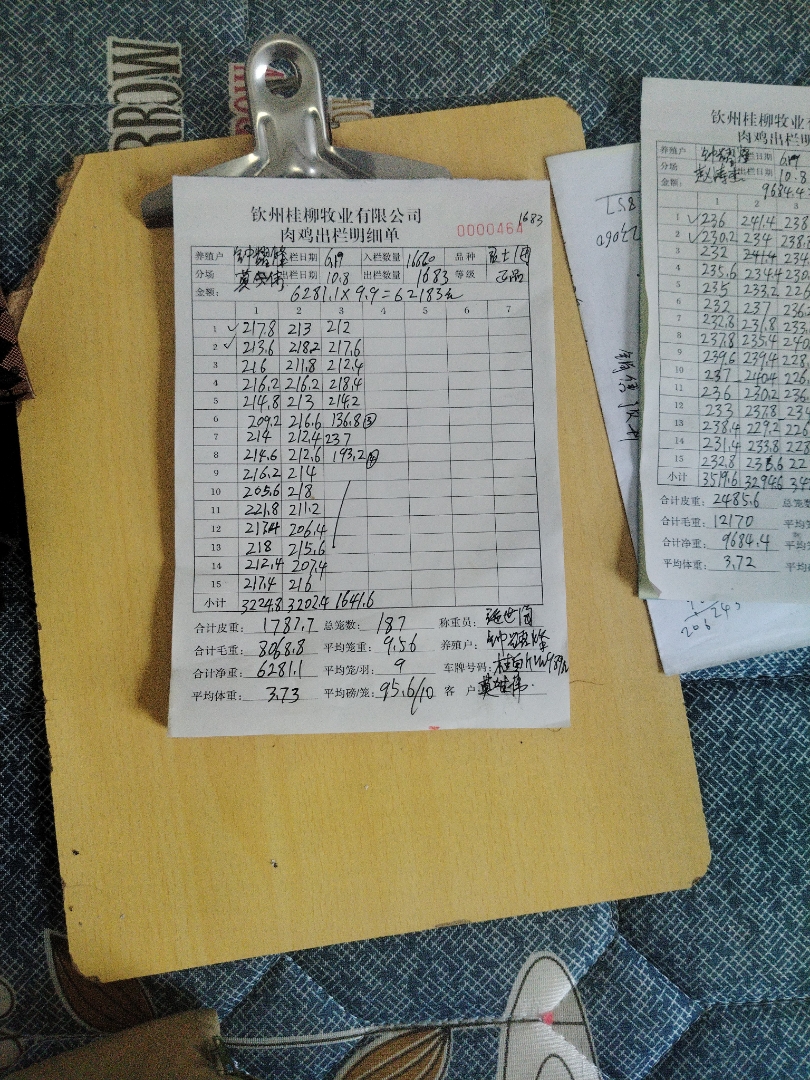 RROW
钦州桂柳牧业有限公司
肉鸡出栏明细单
0000464
1683
养殖户 入栏日期 6.19 入栏数量 1680 品种
分场 出栏日期 10.8 出栏数量 1683 等级 正品
金额: 6281.1×9.9=62183元
1 2 3 4 5 6 7
1 ✓ 217.8 213 212
2 ✓ 213.6 218.2 217.6
3 216 211.8 212.4
4 216.2 216.2 218.4
5 214.8 213 214.2
6 209.2 216.6 136.8⑤
7 214 212.4 237
8 214.6 212.6 193.2
9 216.2 214
10 205.6 218
11 221.8 211.2
12 206.4
13 218 215.6
14 212.4 207.4
15 217.4 216
小计 3224.8 3202.4 1641.6
合计皮重: 1787.7 总笼数: 187 称重员:
合计毛重: 8068.8 平均笼重: 9.56 养殖户:
合计净重: 6281.1 平均笼/羽: 9 车牌号码:
平均体重: 3.73 平均磅/笼: 95.6/10 客 户
钦州桂柳牧业有
肉鸡出栏明
养殖户 出栏日期 6.19
分场 出栏日期 10.8
金额: 9684.4
1 2 3
1 ✓ 236 241.4 238
2 ✓ 230.2 234 238
3 232 241.4 234
4 235.6 234.4
5 235 233.2 226
6 232 237 236
7 232.8 231.8 233
8 237.8 235.4 240
9 239.6 239.4 228
10 237 240.4 228
11 236 230.2 236
12 233 237.8 23
13 238.4 229.2 226
14 231.4 233.8 228
15 232.8 22
小计 3519.6 3294.6
合计皮重: 2485.6 总笼数
合计毛重: 12170 平均笼
合计净重: 9684.4 平均
平均体重: 3.72 平均
206 245